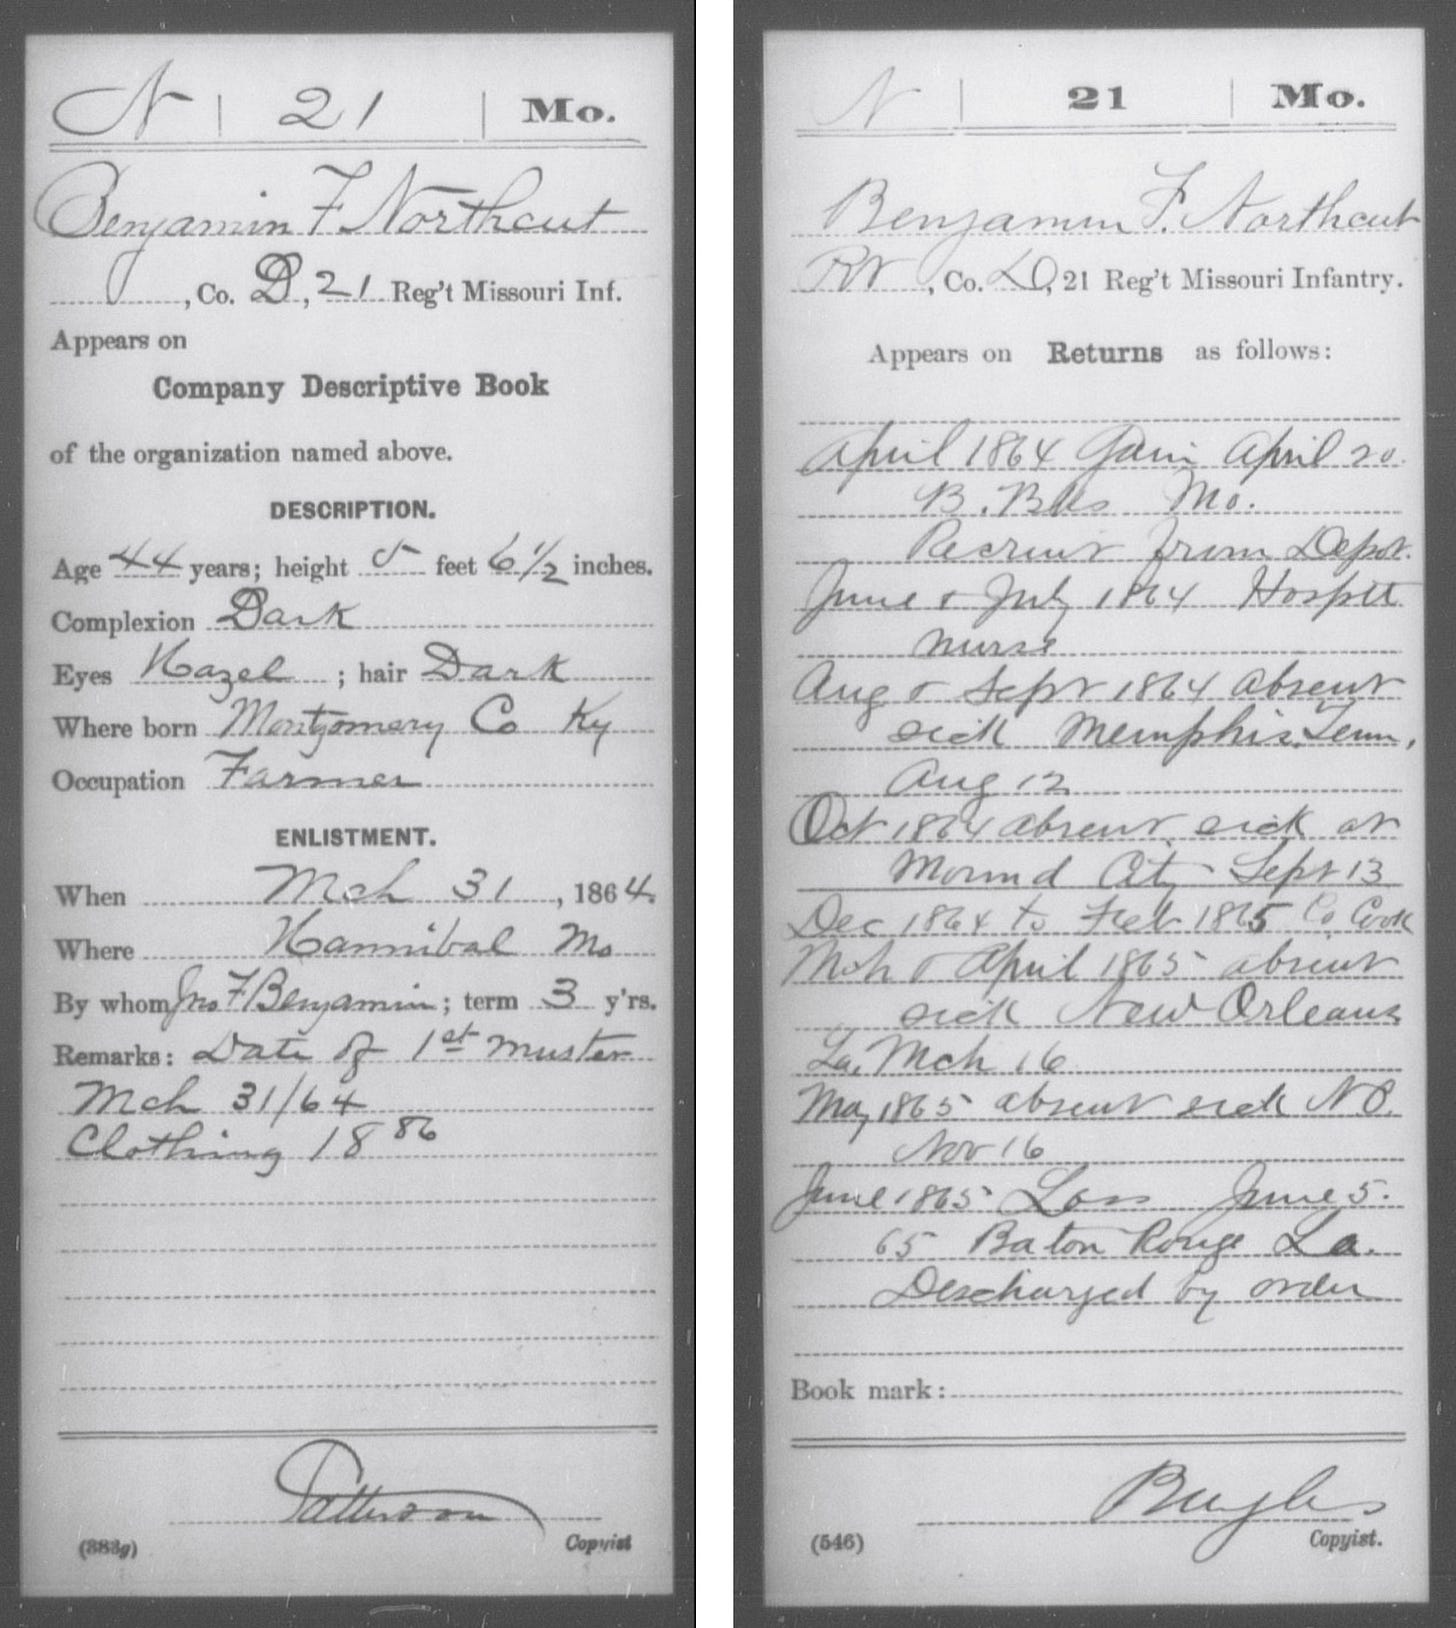 N | 21 | Mo.
Benjamin F Northcut
, Co. D, 21 Reg't Missouri Inf.
Appears on
Company Descriptive Book
of the organization named above.
DESCRIPTION.
Age 44 years; height 5 feet 6 1/2 inches.
Complexion Dark
Eyes Hazel ; hair Dark
Where born Montgomery Co Ky
Occupation Farmer
ENLISTMENT.
When Mch 31, 1864.
Where Hannibal Mo
By whom Jno F Benjamin; term 3 y'rs.
Remarks: Date of 1st muster
Mch 31/64
Clothing 18 86
Patterson
(383g) Copyist
N | 21 | Mo.
Benjamin F. Northcut
, Co. D, 21 Reg't Missouri Infantry.
Appears on Returns as follows:
April 1864 Gain April 20.
Mo.
Recruit from Depot.
June & July 1864 Hospitl
nurse
Aug & Sept 1864 absent
sick Memphis, Tenn,
Aug 12
Oct 1864 absent sick at
Mound City Sept 13
Dec 1864 to Feb 1865 Co. Cook
Mch & April 1865 absent
sick New Orleans
La. Mch 16
May 1865 absent sick N.O.
Nov 16
June 1865 Loss June 5.
65 Baton Rouge La.
Discharged by order
Book mark:
(546) Copyist.